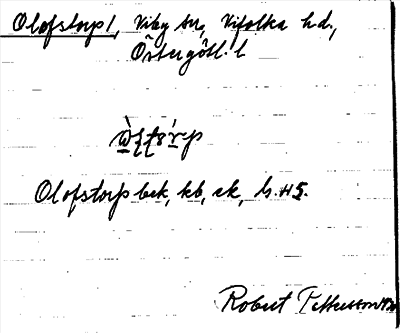 Olofstorp 1, Viby sn, Vifolka hd,
Östergötl. l
Olofstorp bek, kb, sk, h. H5.
Robert Pettersson